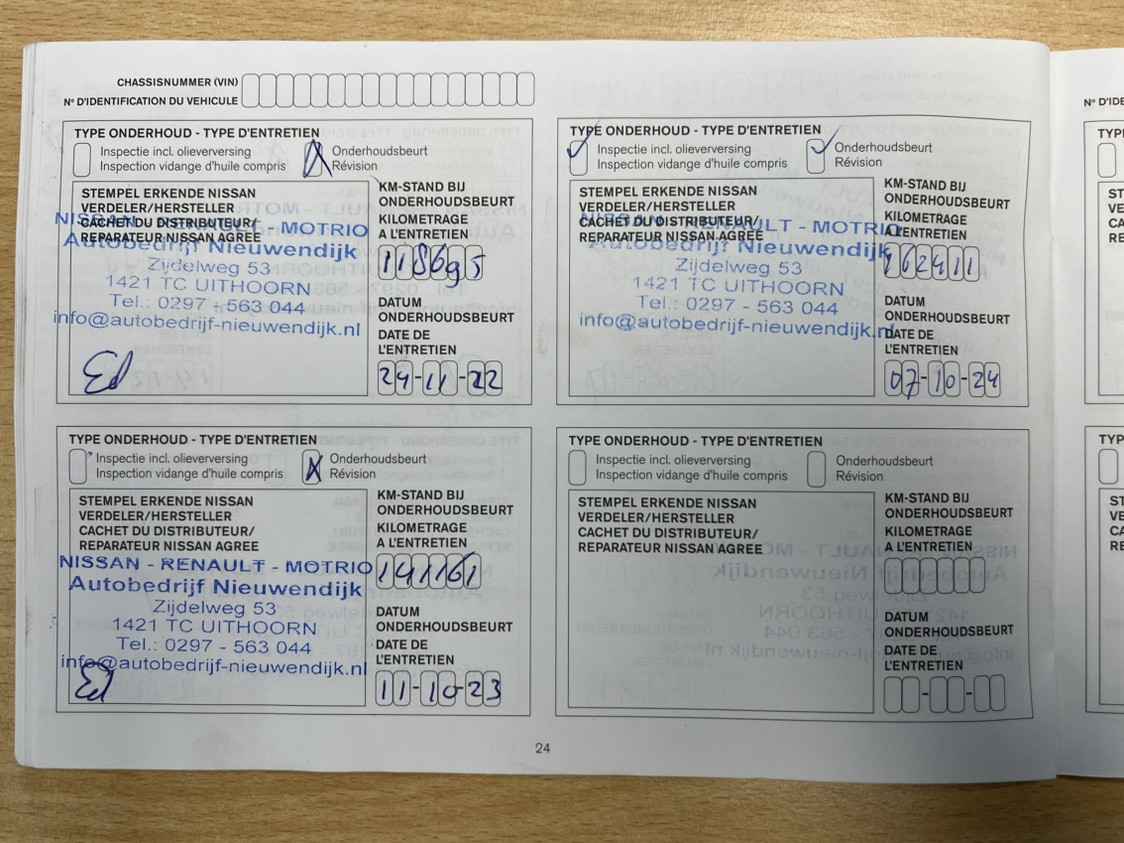 CHASSISNUMMER (VIN)
N° D'IDENTIFICATION DU VEHICULE
TYPE ONDERHOUD - TYPE D'ENTRETIEN
Inspectie incl. olieverversing
Inspection vidange d'huile compris
Onderhoudsbeurt
Révision
STEMPEL ERKENDE NISSAN
VERDELER/HERSTELLER
CACHET DU DISTRIBUTEUR/
REPARATEUR NISSAN AGREE
NISSAN - RENAULT - MOTRIO
Autobedrijf Nieuwendijk
Zijdelweg 53
1421 TC UITHOORN
Tel.: 0297 - 563 044
info@autobedrijf-nieuwendijk.nl
Ed
KM-STAND BIJ
ONDERHOUDSBEURT
KILOMETRAGE
A L'ENTRETIEN
118695
DATUM
ONDERHOUDSBEURT
DATE DE
L'ENTRETIEN
24-11-22
TYPE ONDERHOUD - TYPE D'ENTRETIEN
Inspectie incl. olieverversing
Inspection vidange d'huile compris
Onderhoudsbeurt
Révision
STEMPEL ERKENDE NISSAN
VERDELER/HERSTELLER
CACHET DU DISTRIBUTEUR/
REPARATEUR NISSAN AGREE
NISSAN - RENAULT - MOTRIO
Autobedrijf Nieuwendijk
Zijdelweg 53
1421 TC UITHOORN
Tel.: 0297 - 563 044
info@autobedrijf-nieuwendijk.nl
KM-STAND BIJ
ONDERHOUDSBEURT
KILOMETRAGE
A L'ENTRETIEN
162411
DATUM
ONDERHOUDSBEURT
DATE DE
L'ENTRETIEN
07-10-24
TYPE ONDERHOUD - TYPE D'ENTRETIEN
Inspectie incl. olieverversing
Inspection vidange d'huile compris
Onderhoudsbeurt
Révision
STEMPEL ERKENDE NISSAN
VERDELER/HERSTELLER
CACHET DU DISTRIBUTEUR/
REPARATEUR NISSAN AGREE
NISSAN - RENAULT - MOTRIO
Autobedrijf Nieuwendijk
Zijdelweg 53
1421 TC UITHOORN
Tel.: 0297 - 563 044
info@autobedrijf-nieuwendijk.nl
Ed
KM-STAND BIJ
ONDERHOUDSBEURT
KILOMETRAGE
A L'ENTRETIEN
141161
DATUM
ONDERHOUDSBEURT
DATE DE
L'ENTRETIEN
11-10-23
TYPE ONDERHOUD - TYPE D'ENTRETIEN
Inspectie incl. olieverversing
Inspection vidange d'huile compris
Onderhoudsbeurt
Révision
STEMPEL ERKENDE NISSAN
VERDELER/HERSTELLER
CACHET DU DISTRIBUTEUR/
REPARATEUR NISSAN AGREE
KM-STAND BIJ
ONDERHOUDSBEURT
KILOMETRAGE
A L'ENTRETIEN
DATUM
ONDERHOUDSBEURT
DATE DE
L'ENTRETIEN
24